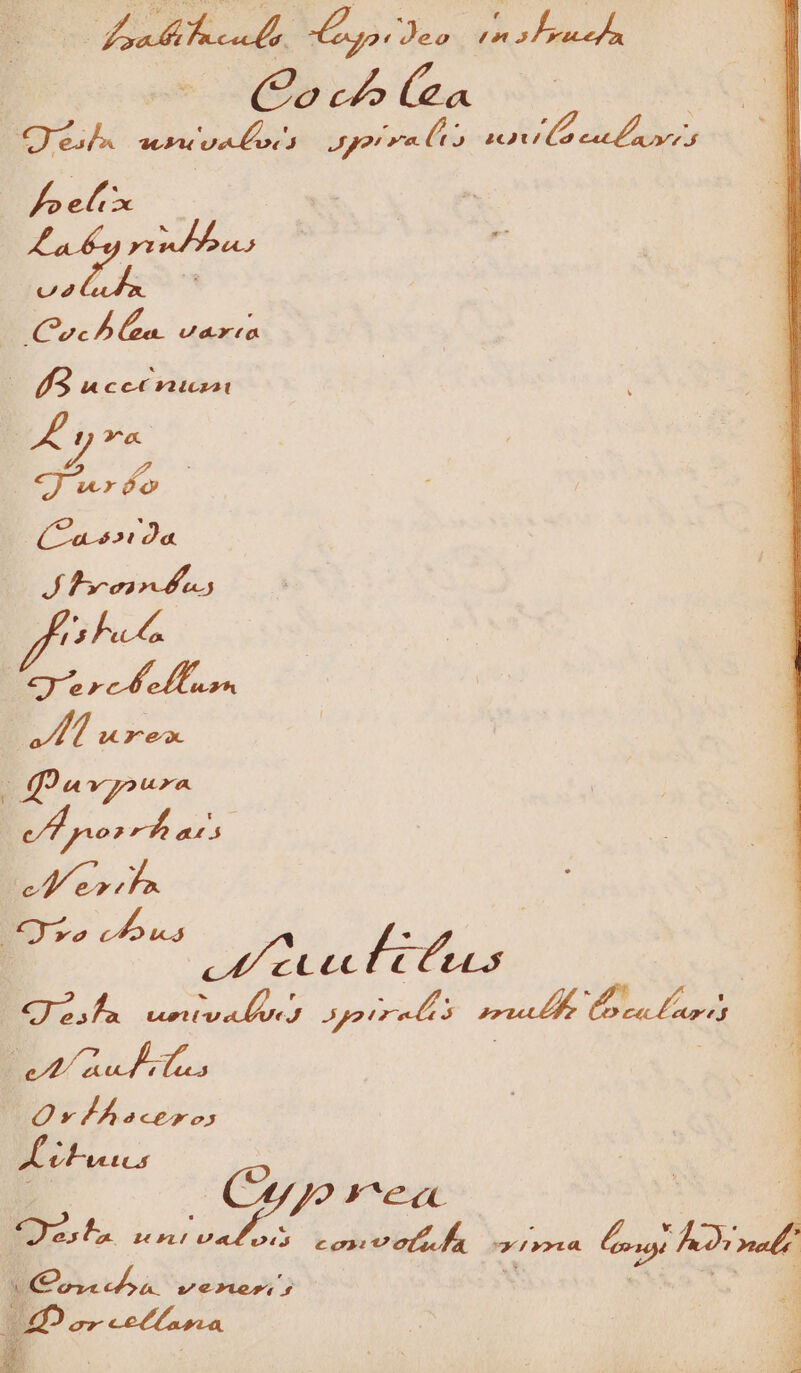 habitaculo Lapideo instructa
Cochlea
Testa univalvis spiralis unilocularis
helix
Labyrinthus
voluta
Cochlea varia
Buccinum
Lyra
Turbo
Cassida
Strombus
fistula
Terebellum
Murex
Purpura
Aporrhais
Nerita
Trochus
Nautilus
Testa univalvis spiralis multilocularis
Nautilus
Orthoceros
Lituus
Cyprea
Testa univalvis convoluta rima longitudinali
Concha veneris
Porcellana